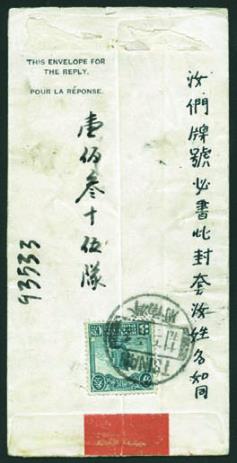 THIS ENVELOPE FOR
THE REPLY.
POUR LA RÉPONSE.
汝們牌號必書此封套汝姓名如同
壹佰叁十伍隊
93533
TSINAN